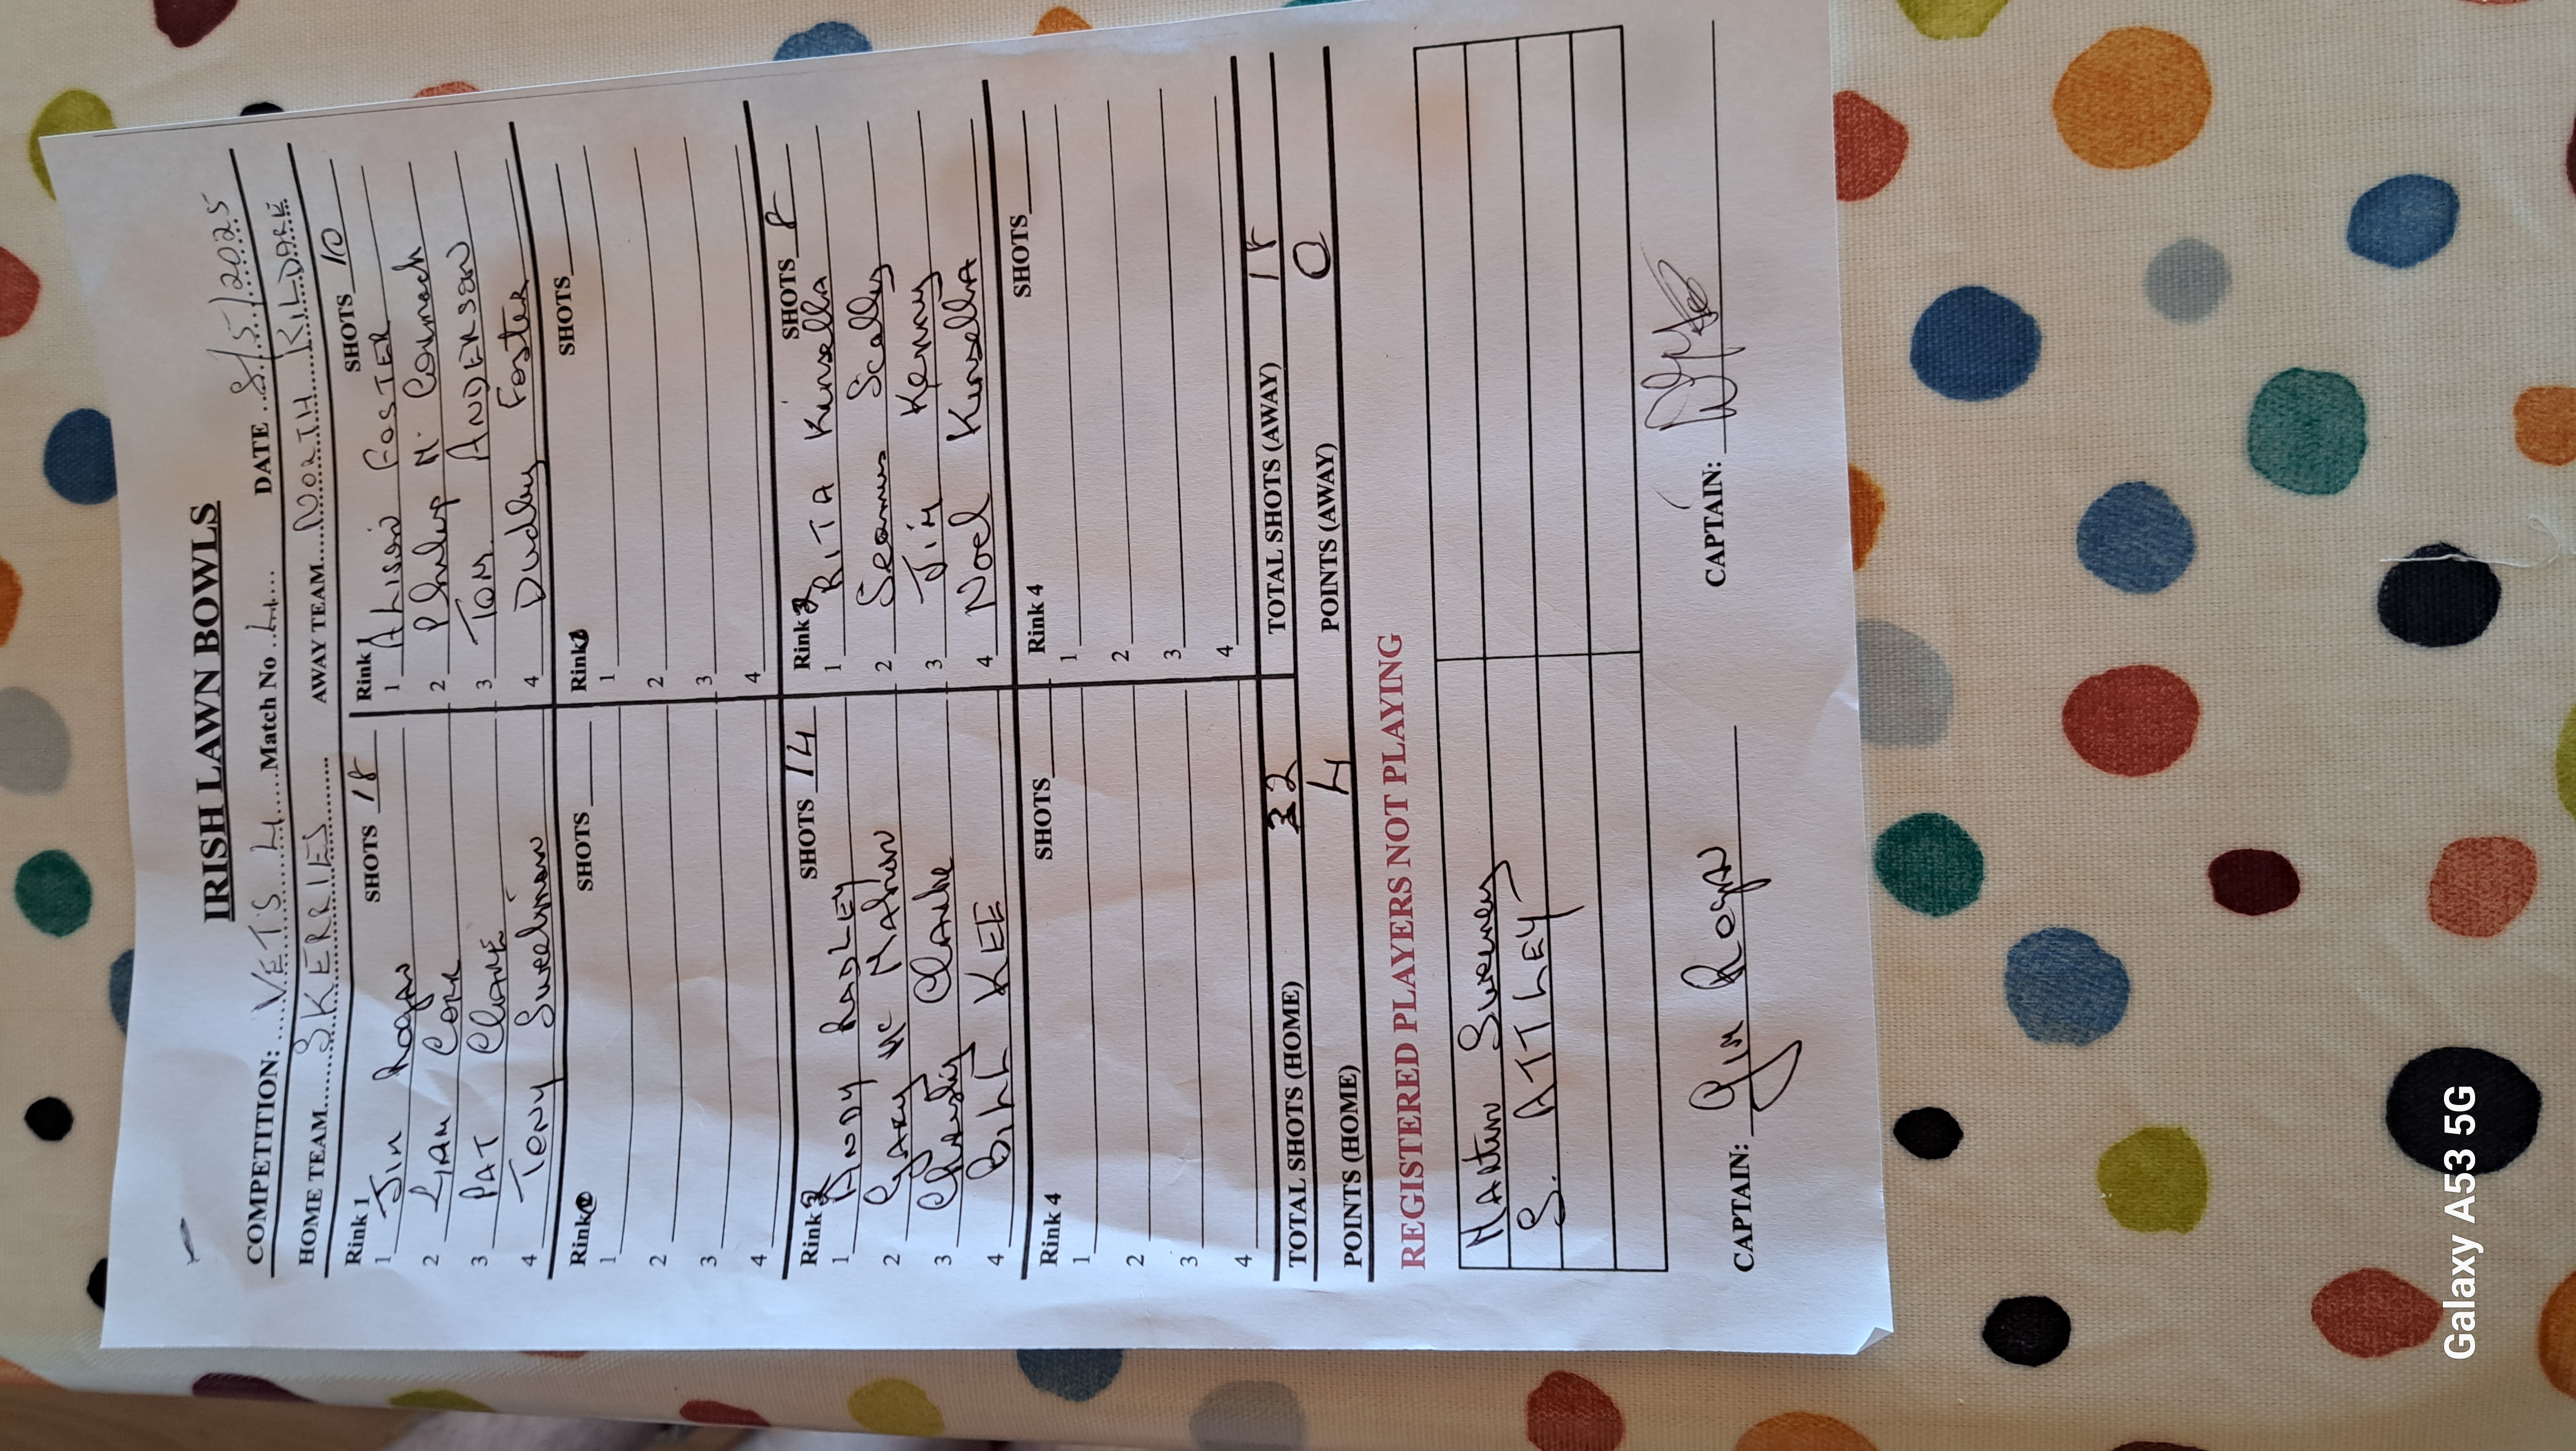 IRISH LAWN BOWLS
COMPETITION: VETS 4 Match No 1 DATE 8/5/2025
HOME TEAM SKERRIES AWAY TEAM NORTH KILDARE
Rink 1 SHOTS 18 Rink 1 SHOTS 10
1 Jim Rogan 1 ALISON FOSTER
2 LIAM Cork 2 Philip Mc Cormack
3 PAT Clarke 3 TOM ANDERSON
4 TONY Sweetman 4 Dudley Foster
Rink SHOTS Rink SHOTS
1 1
2 2
3 3
4 4
Rink 2 SHOTS 14 Rink 2 SHOTS 8
1 ANDY RADLEY 1 RITA Kinsella
2 Gary Mc Mahon 2 Seamus Scally
3 Christy Clarke 3 Jim Kenny
4 BILL KEE 4 Noel Kinsella
Rink 4 SHOTS Rink 4 SHOTS
1 1
2 2
3 3
4 4
TOTAL SHOTS (HOME) 32 TOTAL SHOTS (AWAY) 18
POINTS (HOME) 4 POINTS (AWAY) 0
REGISTERED PLAYERS NOT PLAYING
MARTIN Sweeney
S. ATTLEY
CAPTAIN: Jim Rogan CAPTAIN:
Galaxy A53 5G